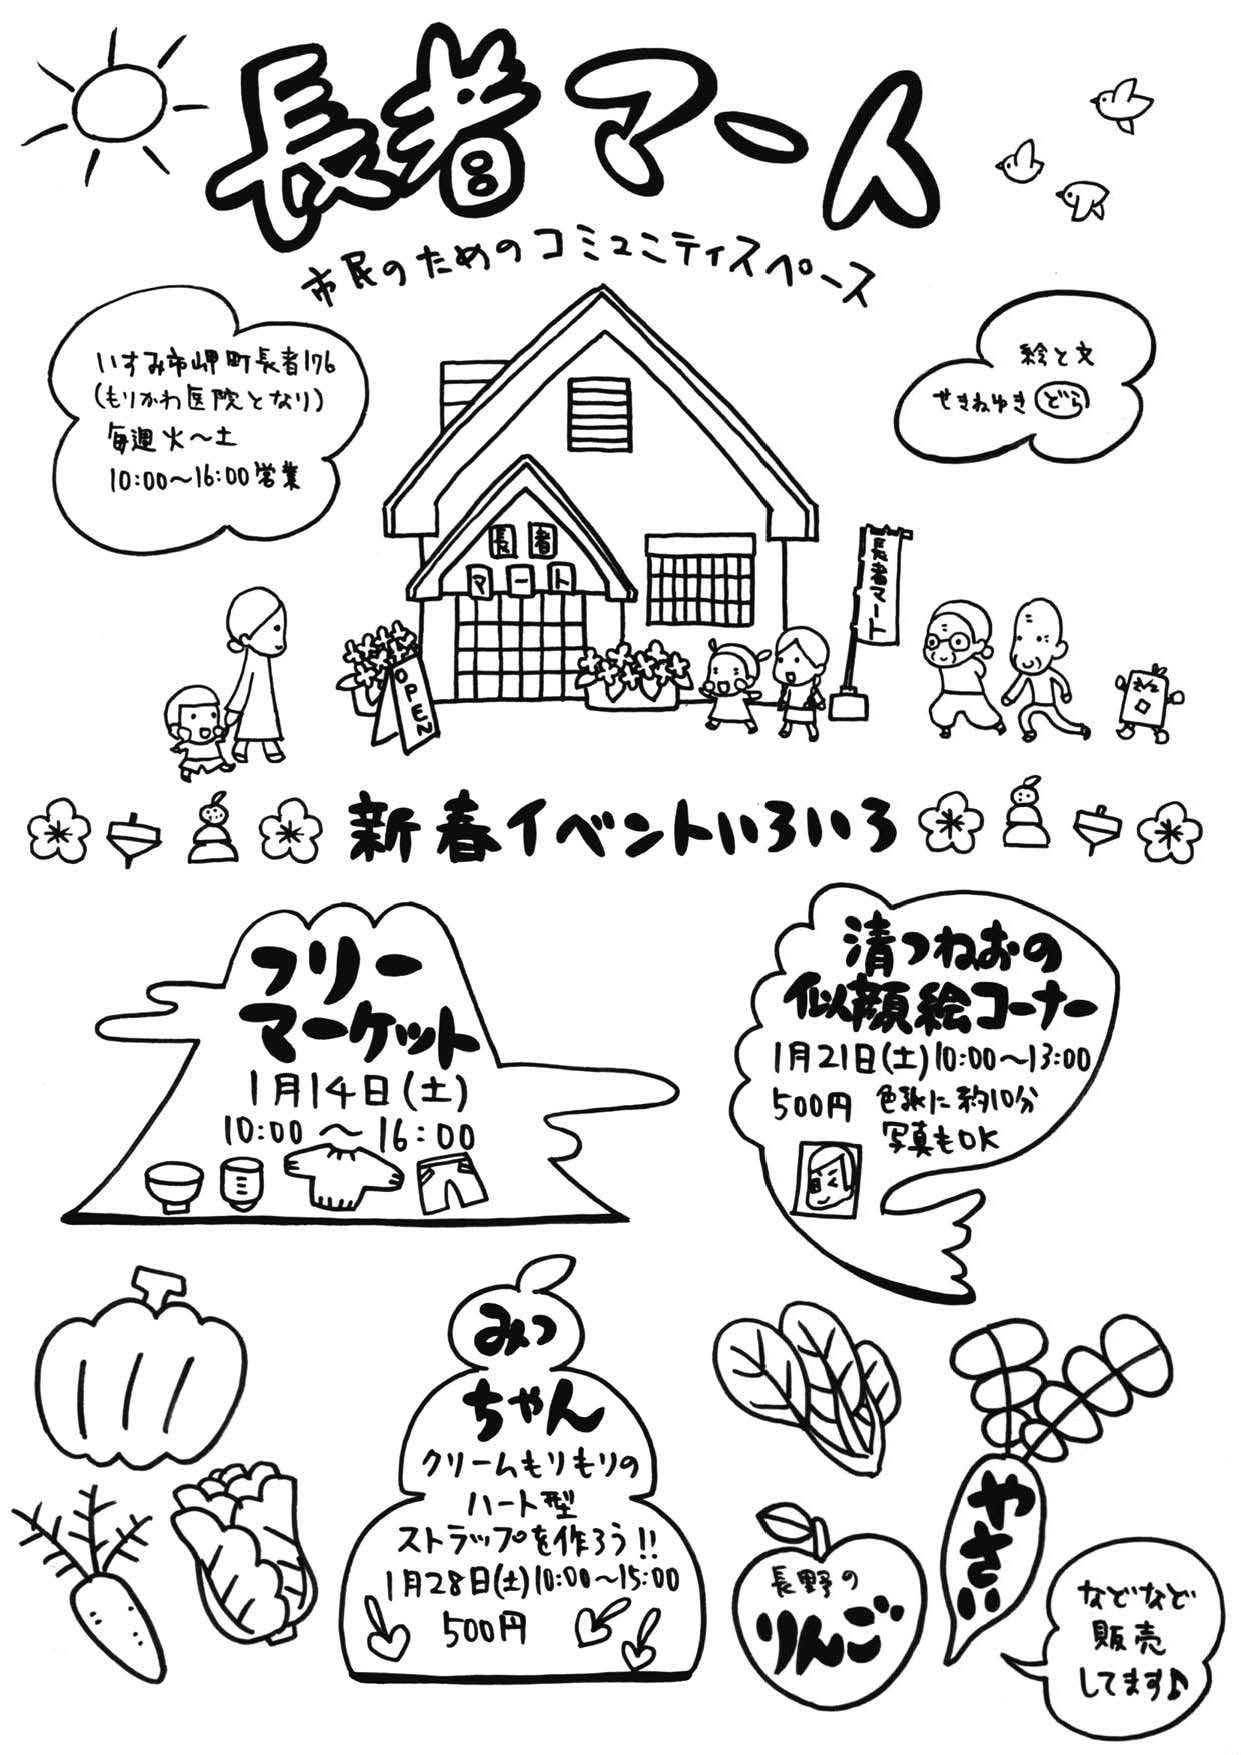 長者マート
市民のためのコミュニティスペース
いすみ市岬町長者176
(もりかわ医院となり)
毎週火〜土
10:00〜16:00営業
絵と文
せきねゆき どら
長者
マート
長者マート
OPEN
新春イベントいろいろ
フリー
マーケット
1月14日(土)
10:00〜16:00
清つねおの
似顔絵コーナー
1月21日(土)10:00〜13:00
500円 色紙に約10分
写真もOK
みっ
ちゃん
クリームもりもりの
ハート型
ストラップを作ろう!!
1月28日(土)10:00〜15:00
500円
長野の
りんご
やさい
などなど
販売
してます♪